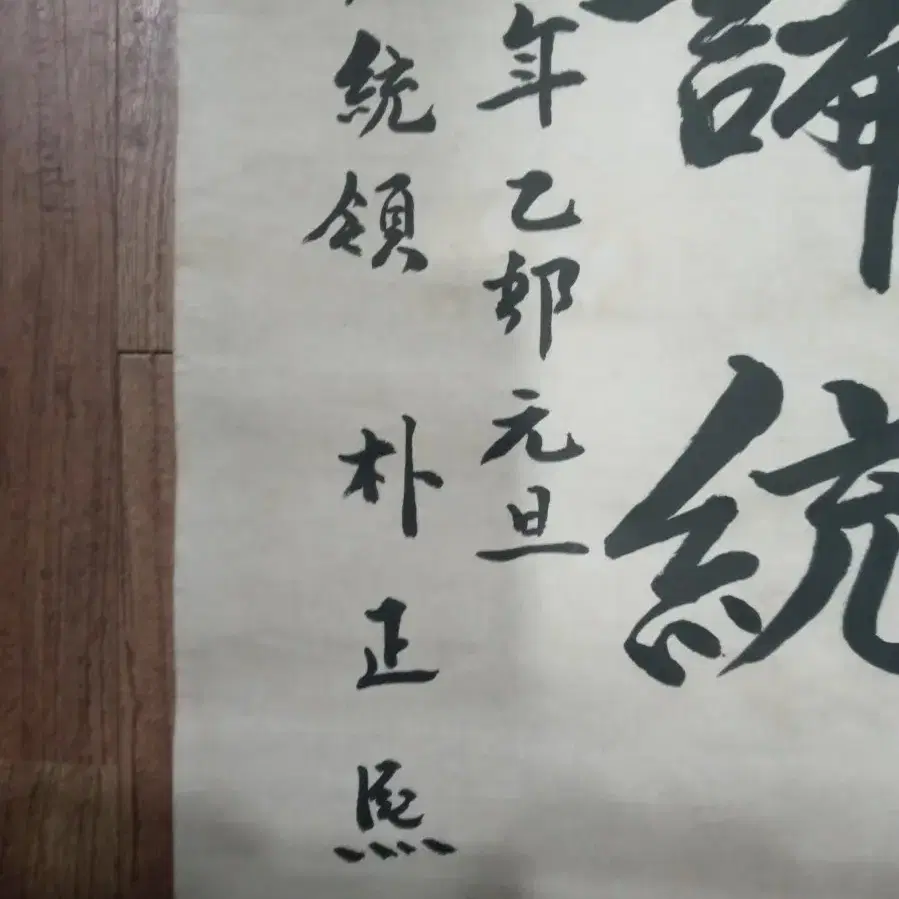 論統
年乙卯元旦
統領 朴正熙